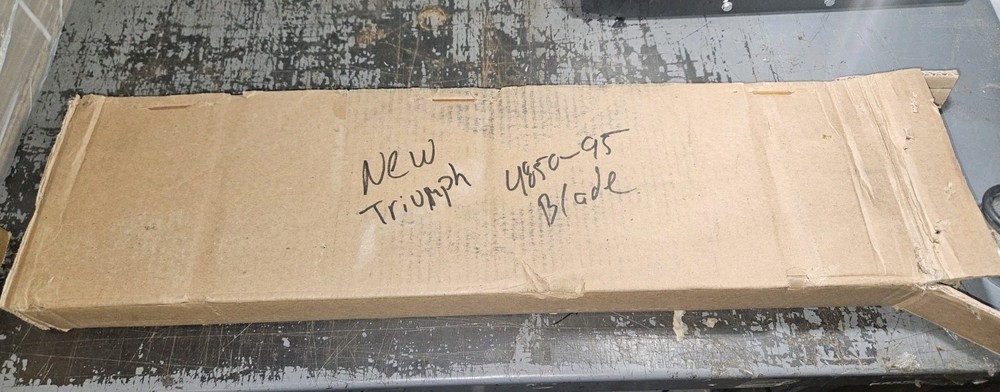 New
Triumph
4850-95
Blade